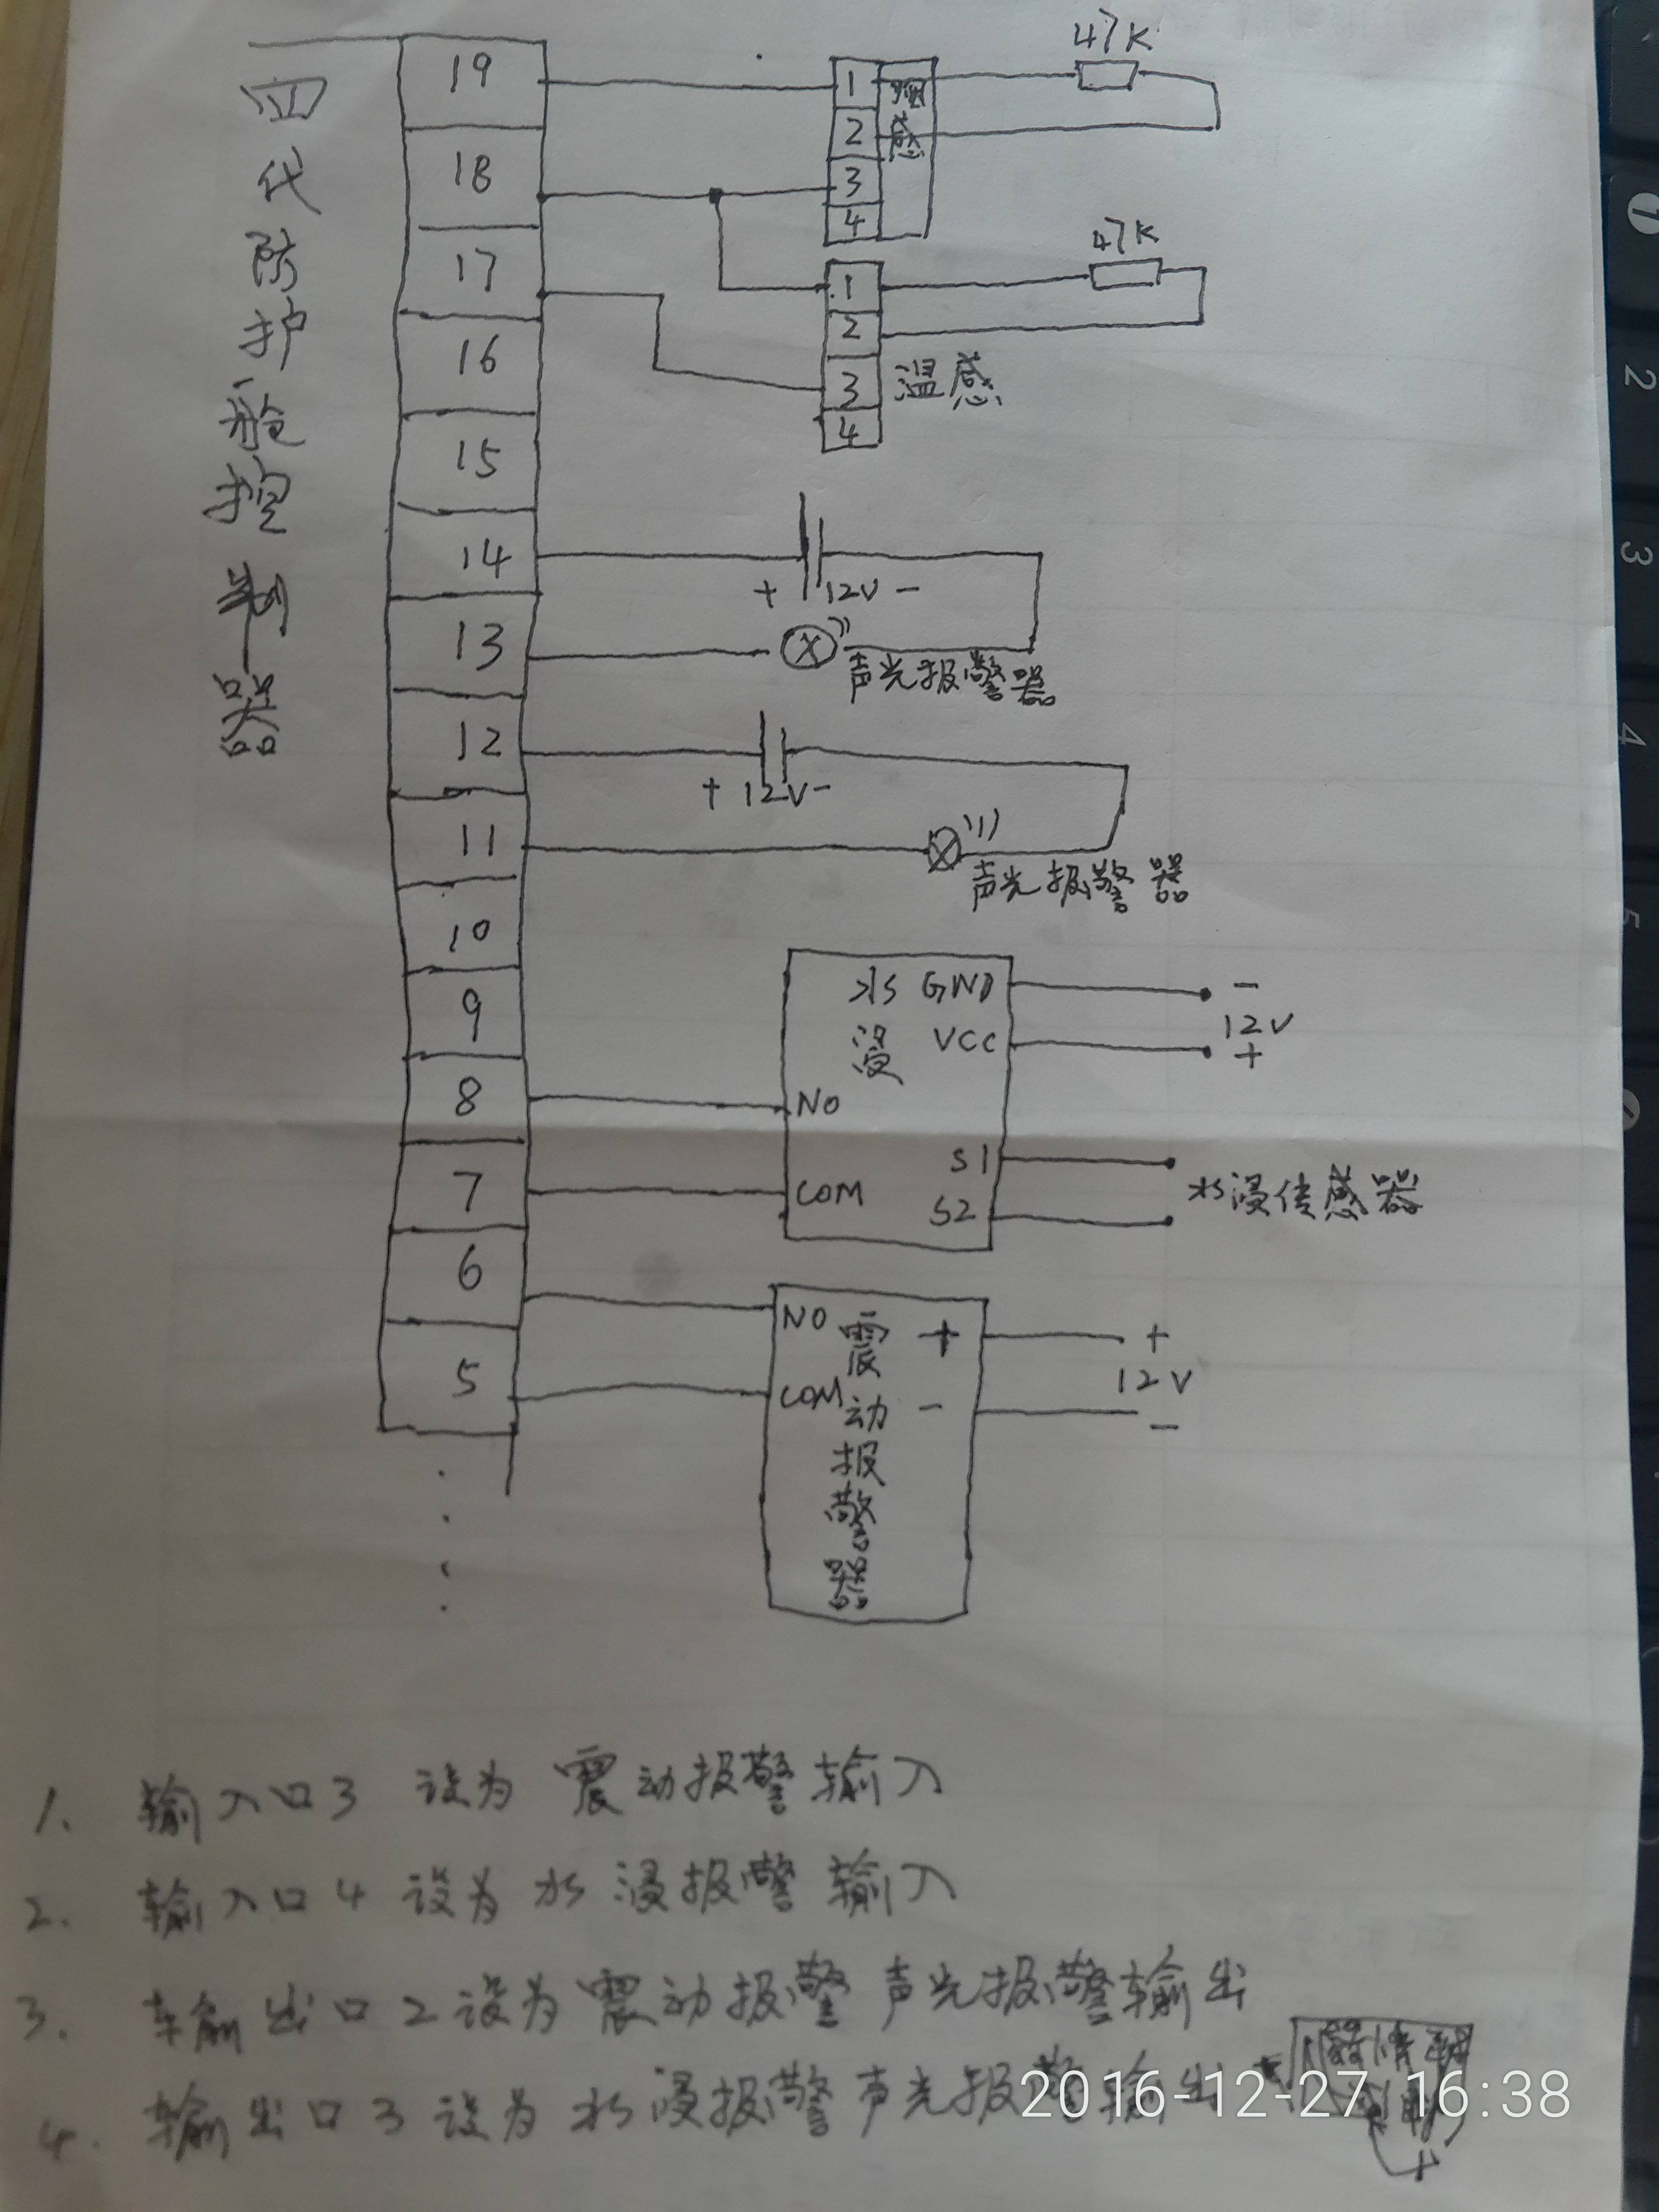 四代防护舱控制器
19
18
17
16
15
14
13
12
11
10
9
8
7
6
5
1
2
3
4
烟感
47K
1
2
3
4
温感
47K
+ 12V -
声光报警器
+ 12V -
声光报警器
水浸
GND
VCC
NO
COM
S1
S2
-
12V
+
水浸传感器
NO
COM
震动报警器
+
-
+
12V
-
1. 输入口3 设为 震动报警输入
2. 输入口4 设为 水浸报警输入
3. 输出口2设为震动报警声光报警输出
4. 输出口3设为水浸报警声光报警输出
2016-12-27 16:38
1
2
3
4
5